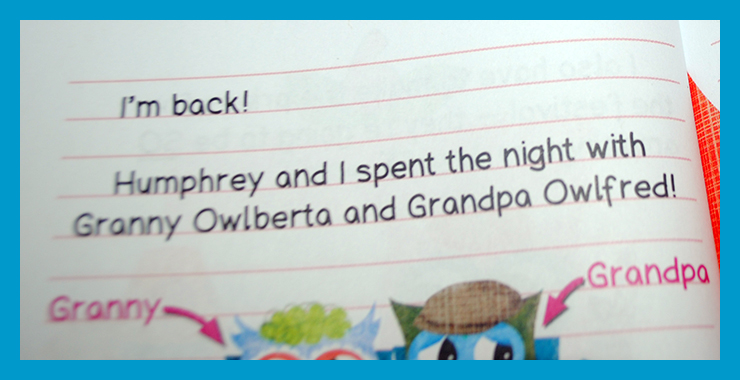 I'm back!
Humphrey and I spent the night with
Granny Owlberta and Grandpa Owlfred!
Grandpa
Granny